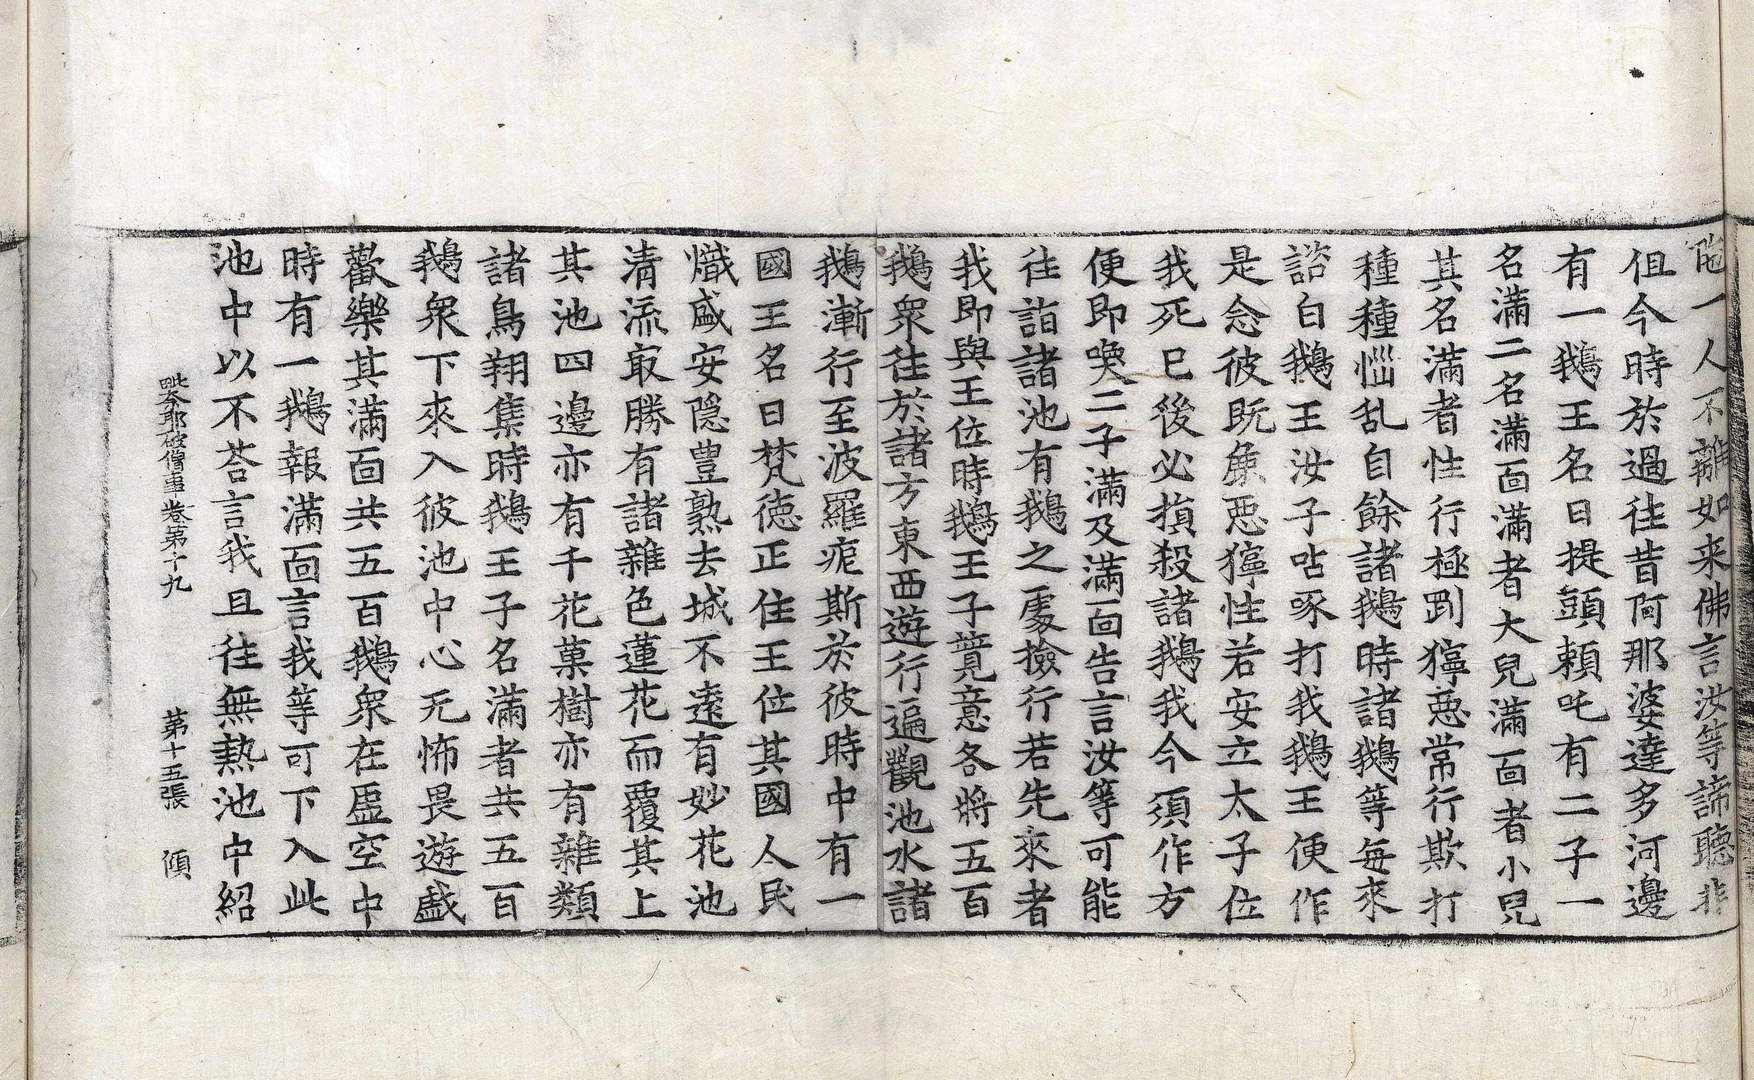 陁一人不離如来佛言汝等諦聽非
但今時於過往昔阿那婆達多河邊
有一鵝王名曰提頭頼吒有二子一
名滿二名滿面滿者大兒滿面者小兒
其名滿者性行極㓻獰惡常行欺打
種種惱乱自餘諸鵝時諸鵝等每來
諮白鵝王汝子呫啄打我鵝王便作
是念彼旣麁惡獰性若安立太子位
我死已後必損殺諸鵝我今須作方
便即喚二子滿及滿面告言汝等可能
往詣諸池有鵝之䖏撿行若先來者
我即與王位時鵝王子聞意各將五百
鵝衆往於諸方東西遊行遍觀池水諸
鵝漸行至波羅痆斯於彼時中有一
國王名曰梵德正住王位其國人民
熾盛安隠豊熟去城不遠有妙花池
清流㝡勝有諸雜色蓮花而覆其上
其池四邊亦有千花菓樹亦有雜類
諸鳥翔集時鵝王子名滿者共五百
鵝衆下來入彼池中心无怖畏遊戯
歡樂其滿面共五百鵝衆在虛空中
時有一鵝報滿面言我等可下入此
池中以不荅言我且往無熱池中紹
毗奈耶破僧事卷第十九　第十五張　傾